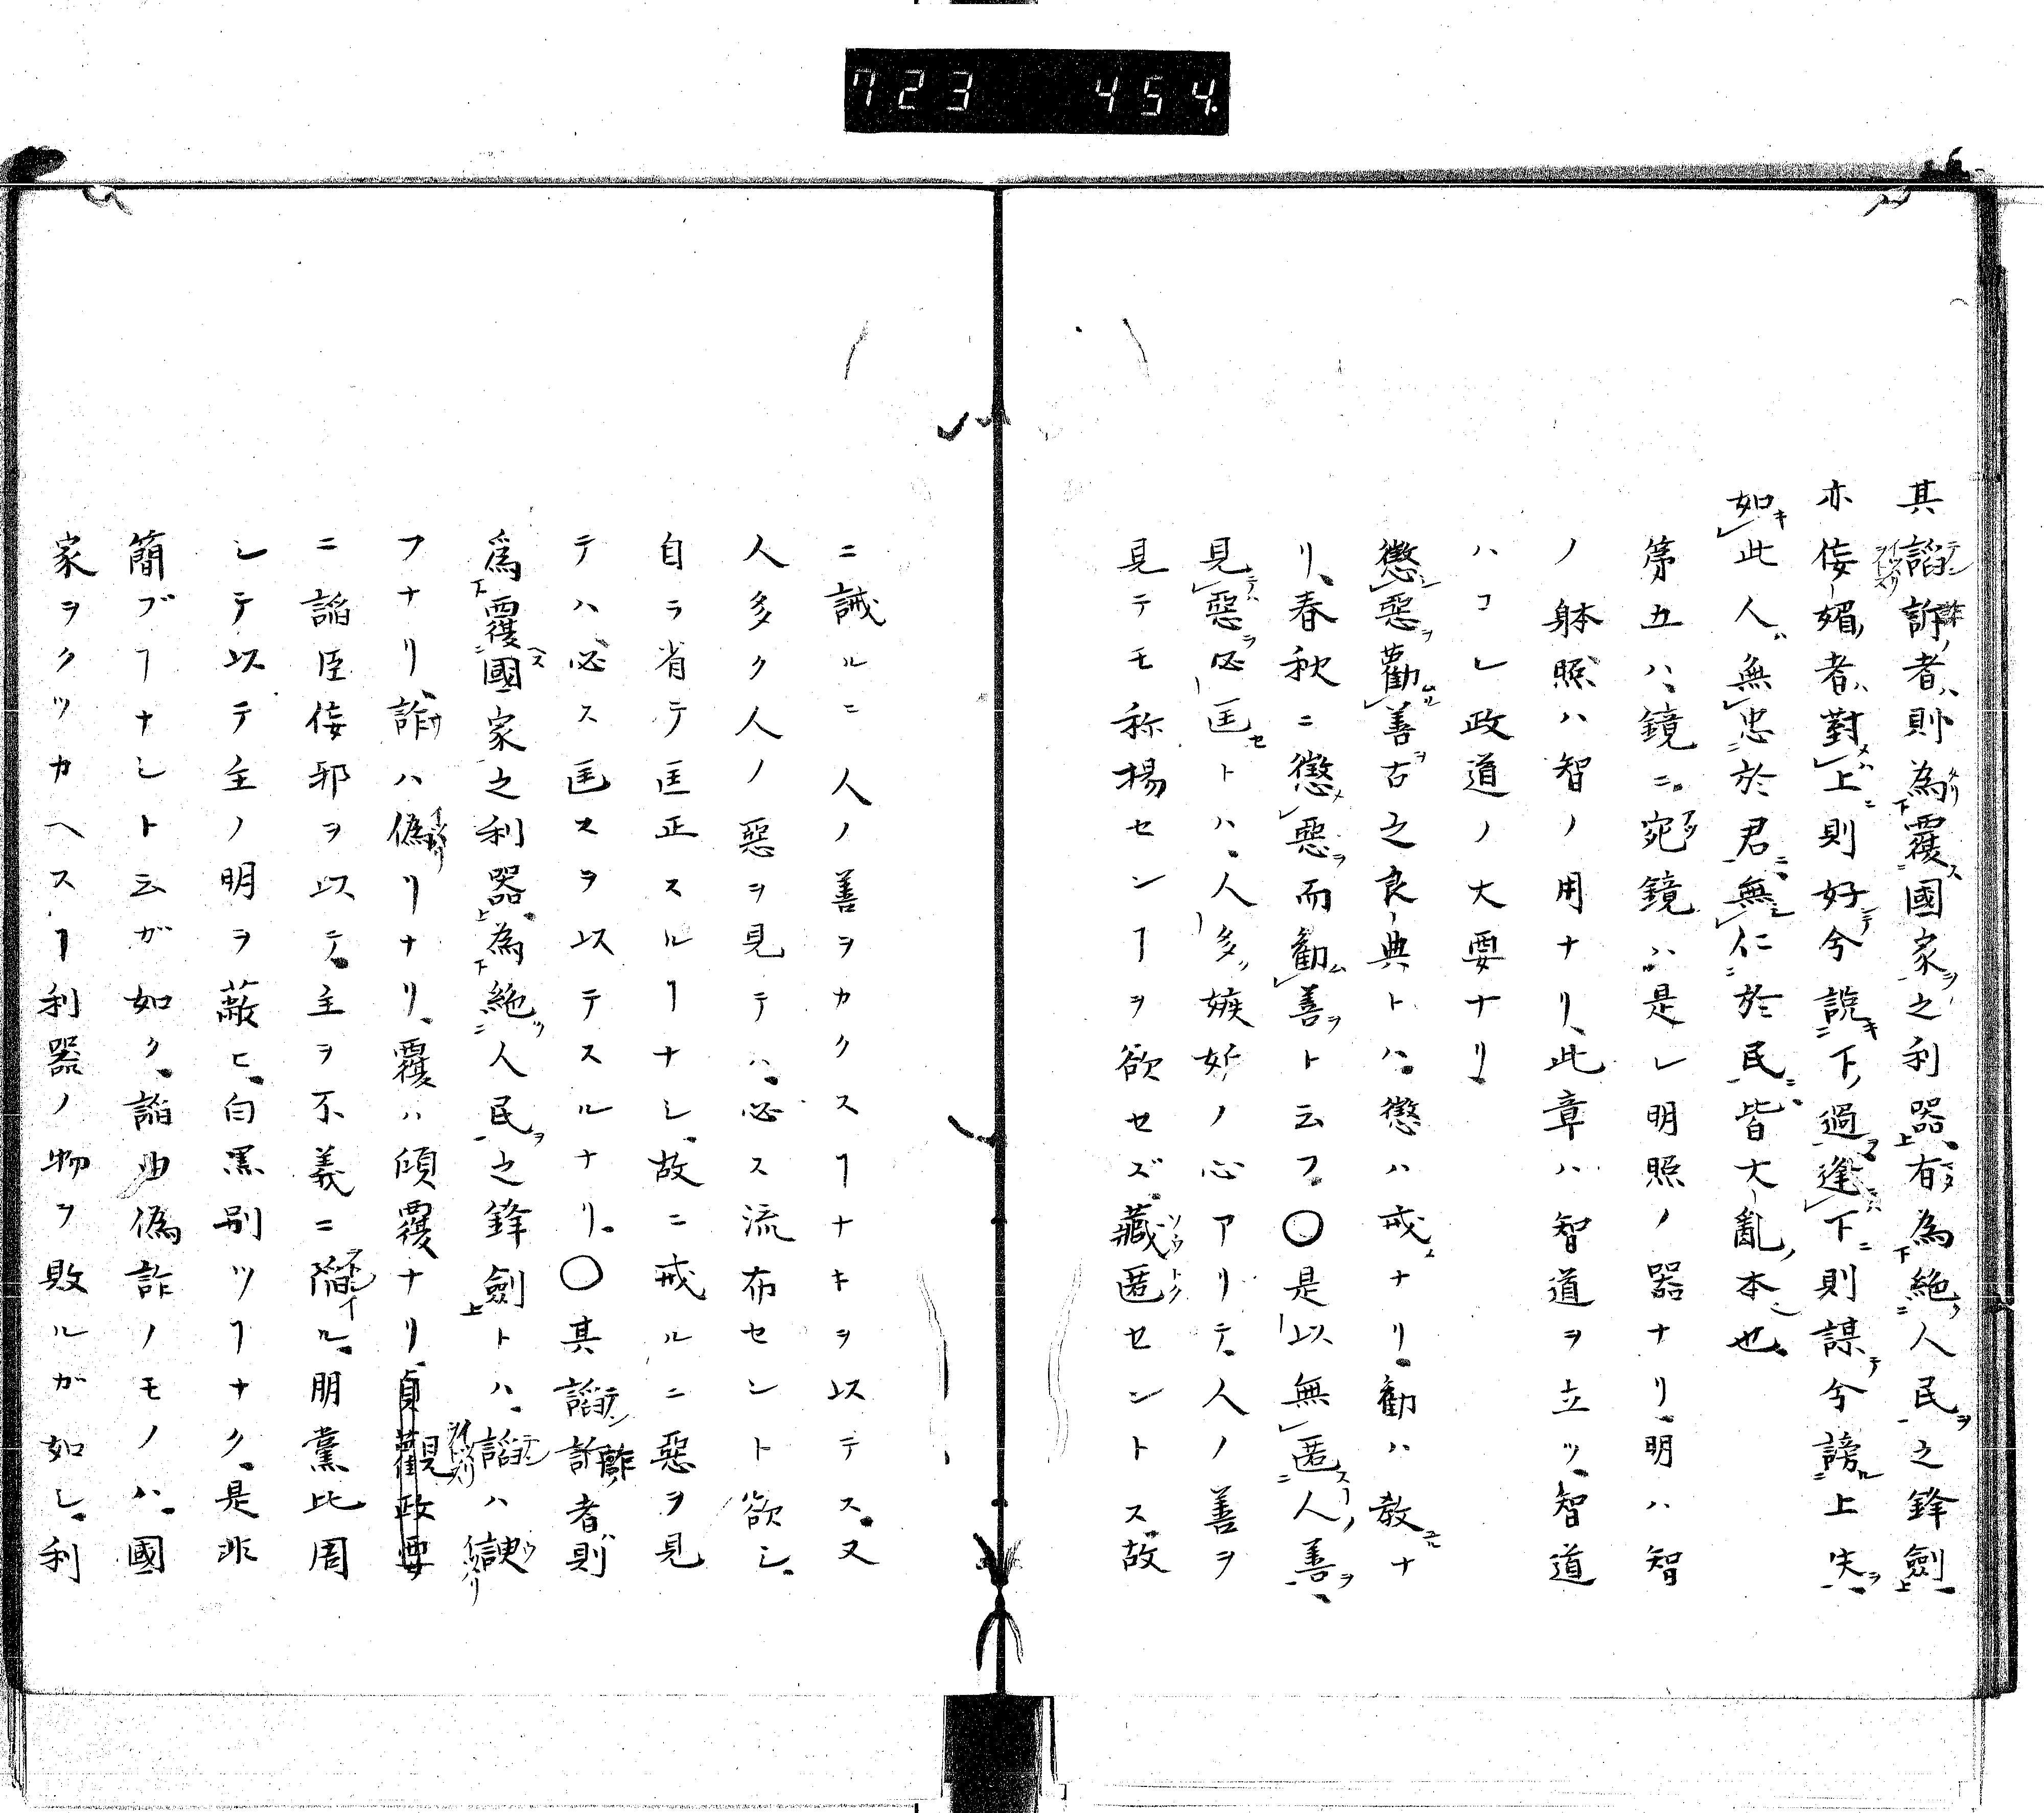 723 454
其諂訴者則為覆國家之利器有為絶人民之鋒劍
亦侫媚者對上則好今説下過逢下則謀今謗上失
如此人無忠於君無仁於民皆大亂本也
第五ハ鏡ニ宛鏡ハ是レ明照ノ器ナリ明ハ智
ノ躰照ハ智ノ用ナリ此章ハ智道ヲ立ツ智道
ハコレ政道ノ大要ナリ
懲惡勸善古之良典トハ懲ハ戒ナリ勸ハ教ナ
リ春秋ニ懲惡而勸善ト云フ〇是以無匿人善
見惡必匡トハ人多嫉妬ノ心アリテ人ノ善ヲ
見テモ称揚センヿヲ欲セズ藏匿セントス故
ニ誡ルニ人ノ善ヲカクスヿナキヲ以テス又
人多ク人ノ惡ヲ見テハ必ス流布セント欲シ
自ラ省テ匡正スルヿナシ故ニ戒ルニ惡ヲ見
テハ必ス匡スヲ以テスルナリ〇其諂訴者則
爲覆國家之利器為絶人民之鋒劍トハ諂ハ諛
フナリ詐ハ偽リナリ覆ハ傾覆ナリ貞觀政要
ニ諂臣侫邪ヲ以テ主ヲ不義ニ陥ル朋黨此周
シテ以テ主ノ明ヲ蔽ヒ白黒別ツヿナク是非
簡ブヿナシト云ガ如ク諂曲偽詐ノモノハ國
家ヲクツカヘスヿ利器ノ物ヲ敗ルガ如シ利